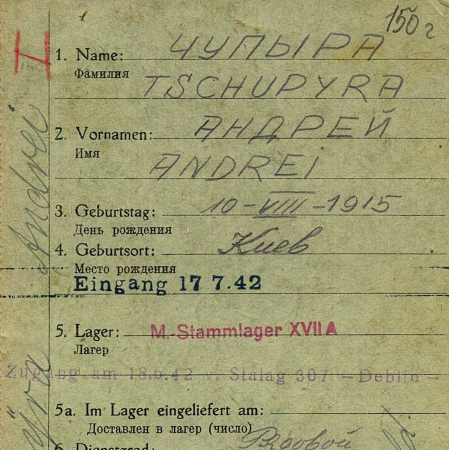 150 г
I
1. Name: ЧУПЫРА
Фамилия
TSCHUPYRA
2. Vornamen: АНДРЕЙ
Имя
ANDREI
3. Geburtstag: 10-VIII-1915
День рождения
4. Geburtsort: Киев
Место рождения
Eingang 17 7.42
5. Lager: M.-Stammlager XVII A
Лагер
Zugang am 18.6.42 v. Stalag 307 - Deblin -
5a. Im Lager eingeliefert am:
Доставлен в лагер (число)
6. Dienstgrad: Рядовой
Andrei